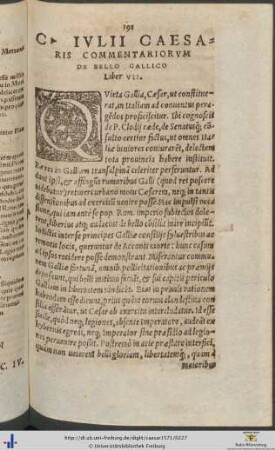 191
C. IVLII CAESA-
RIS COMMENTARIORVM
DE BELLO GALLICO
Liber VII.
QVieta Gallia, Cæsar, ut constitue-
rat, in Italiam ad conuentus pera-
gēdos proficiscitur. Ibi cognoscit
de P. Clodij cæde, de Senatusq́;
sulto certior factus, ut omnes
iuniores coniurarēt, delectum
tota prouincia habere instituit.
Eæ res in Galliam transalpinā celeriter perferuntur. Ad
ipsi, & affingūt rumoribus Galli (quod res poscere
uidebatur) retineri urbano motu Cæsarem, neq; in tantis
dissensionibus ad exercitū uenire posse. Hac impulsi occa
sione, qui iam antè se pop. Rom. imperio subiectos dole-
rent, liberius atq; audacius de bello cōsilia inire incipiunt.
Indictis inter se principes Galliæ consilijs syluestribus ac
remotis locis, queruntur de Acconis morte: hunc casum
ad ipsos recidere posse demonstrant: Miserantur commu-
nem Galliæ fortunā, omnib. pollicitationibus ac præmijs
deposcunt, qui belli initium faciāt, & sui capitis periculo
Galliam in libertatem uindicēt. Eius in primis rationem
habendam esse dicunt, prius quàm eorum clandestina con
silia efferātur, ut Cæsar ab exercitu intercludatur. Id esse
facile, quòd neq; legiones, absente imperatore, audeāt ex
hybernis egredi, neq; imperator sine præsidio ad legio-
nes peruenire possit. Postremò in acie præstare interfici,
quàm non ueterem belli gloriam, libertatemq́;, quam à
maioribus
C. IV.
http://dl.ub.uni-freiburg.de/diglit/caesar1571/0227
© Universitätsbibliothek Freiburg